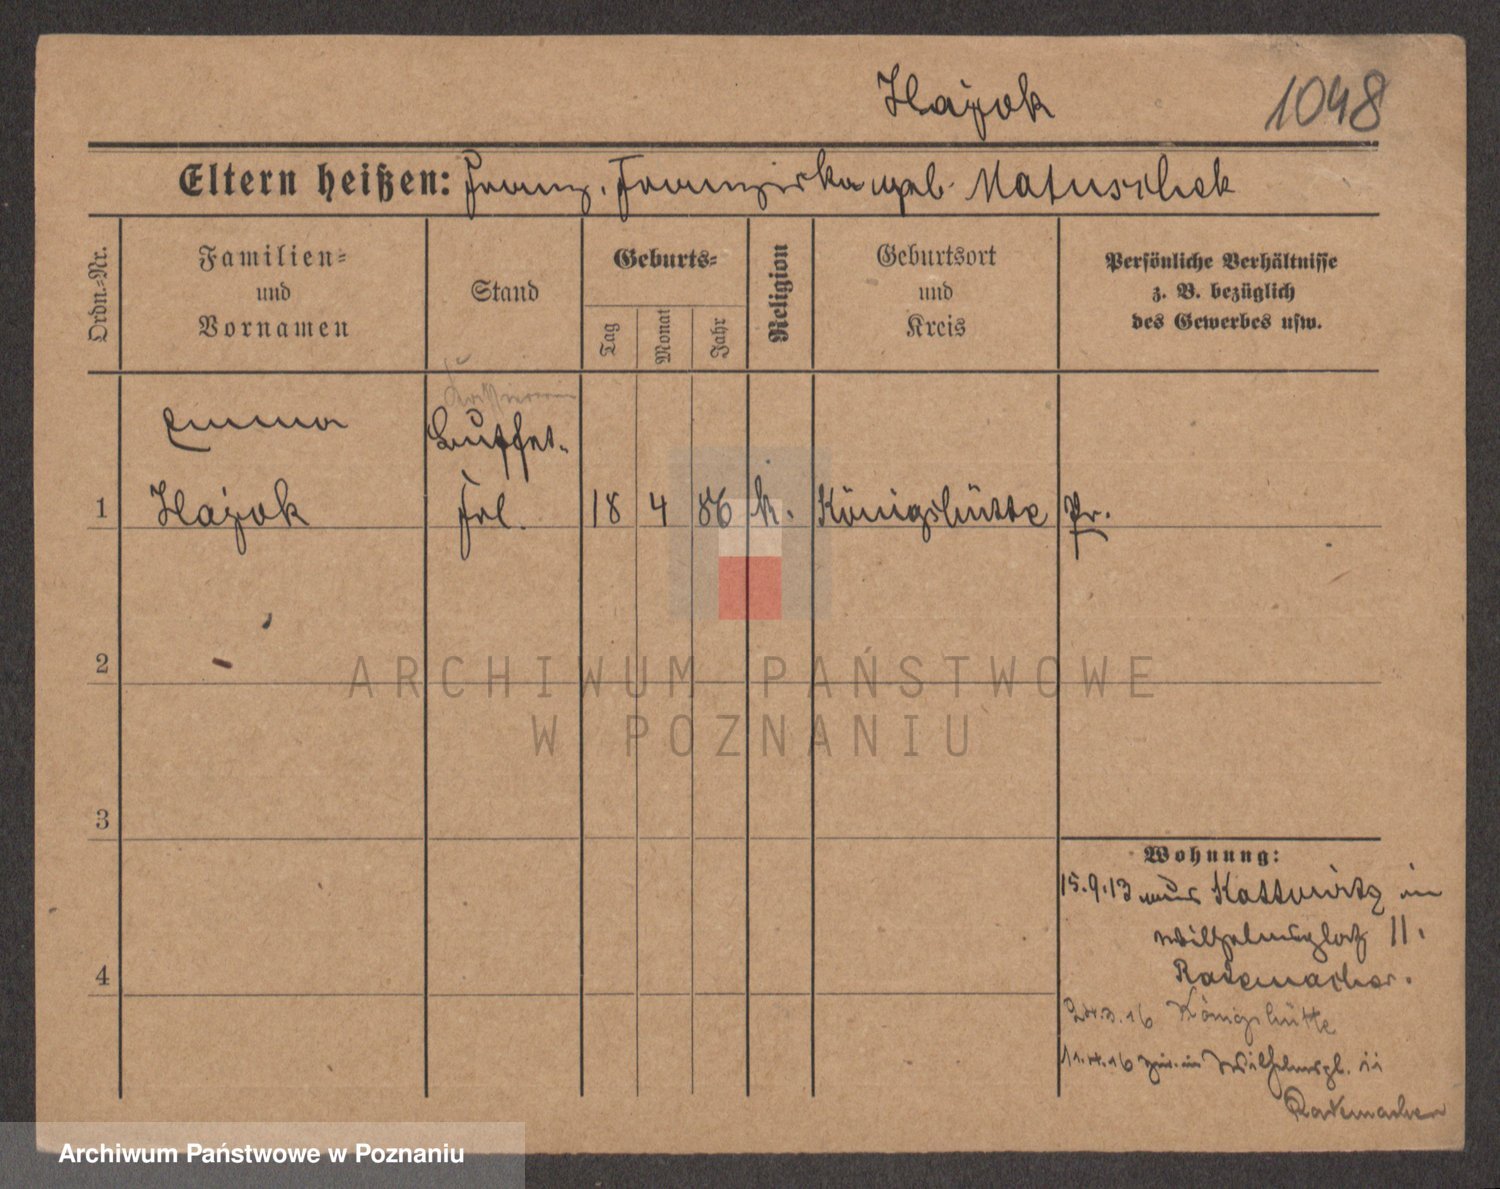 Hajok 1048
Eltern heißen: Franz, Franziska geb. Matuschek
Ordn.-Nr.
Familien-
und
Vornamen
Stand
Geburts-
Tag
Monat
Jahr
Religion
Geburtsort
und
Kreis
Persönliche Verhältnisse
z. B. bezüglich
des Gewerbes usw.
Kassiererin
Emma
Buffet-
1 Hajok Frl. 18 4 86 k. Königshütte Pr.
2
ARCHIWUM PAŃSTWOWE
W POZNANIU
3
Wohnung:
15.9.13 aus Kattowitz in
Wilhelmsplatz 11.
4 Rademacher.
24.3.16 Königshütte
11.4.16 zur. in Wilhelmspl. 11
Rademacher
Archiwum Państwowe w Poznaniu